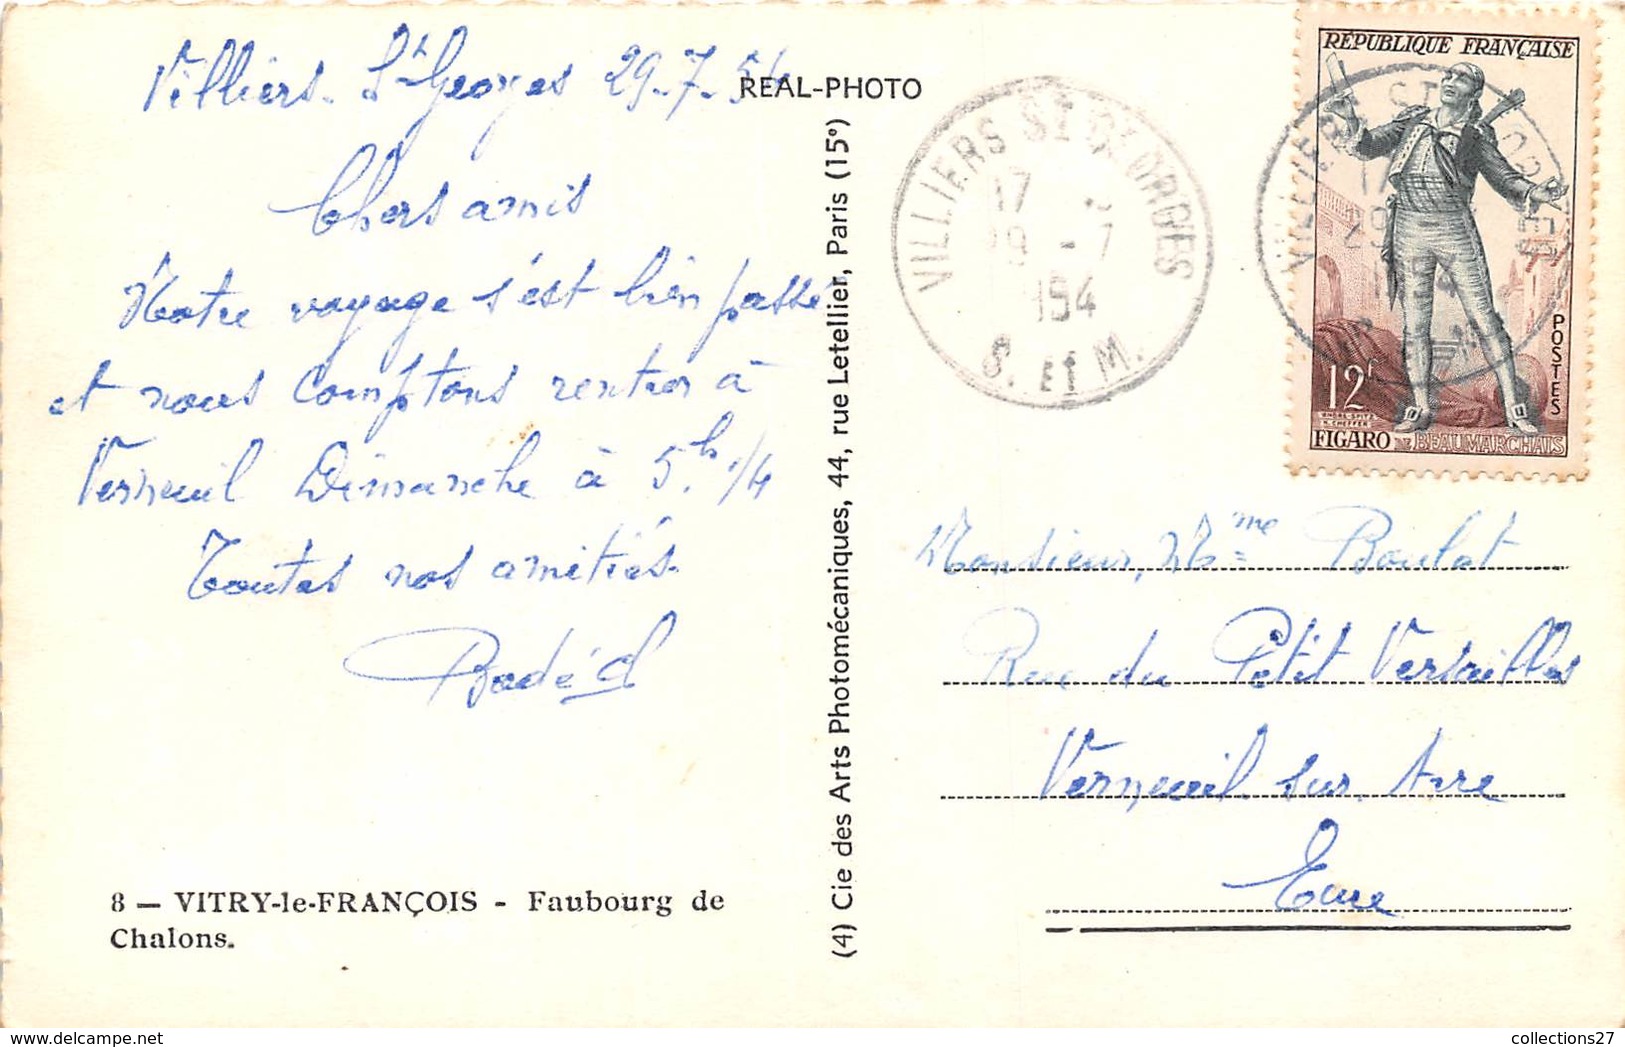 Villiers-St Georges 29-7-54
Chers amis
Notre voyage s'est bien passé
et nous comptons rentrer à
Verneuil Dimanche à 5h.1/4
Toutes nos amitiés.
8 — VITRY-le-FRANÇOIS - Faubourg de
Chalons.
REAL-PHOTO
(4) Cie des Arts Photomécaniques, 44, rue Letellier, Paris (15e)
VILLIERS ST GEORGES
17
29 - 7
1954
S. ET M.
RÉPUBLIQUE FRANÇAISE
POSTES
12f
ANDRÉ-SPITZ
H. CHEFFER
FIGARO DE BEAUMARCHAIS
VILLIERS ST GEORGES
17
29 - 7
1954
Monsieur, Mme Boulot
Rue du Petit Versailles
Verneuil sur Avre
Eure
collections27